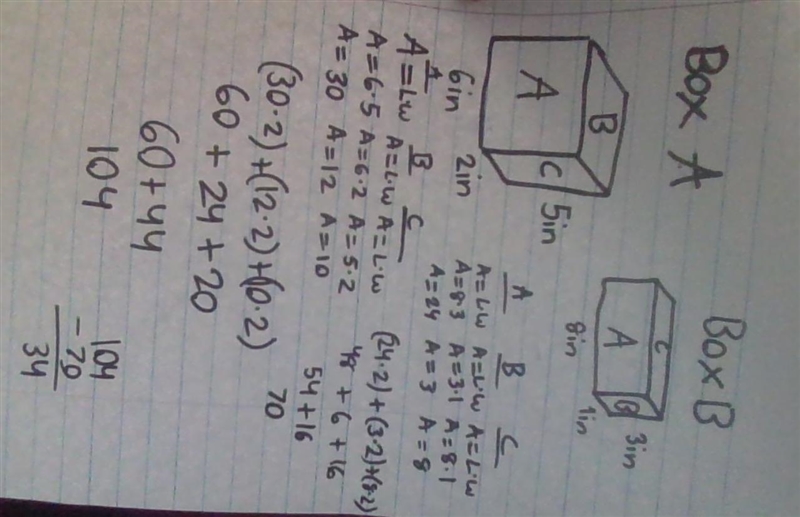 Box A
A
B
C
6in
2in
5in
A B C
A=L·W A=L·W A=L·W
A=6·5 A=6·2 A=5·2
A=30 A=12 A=10
(30·2)+(12·2)+(10·2)
60+24+20
60+44
104
Box B
A
B
C
8in
1in
3in
A B C
A=L·W A=L·W A=L·W
A=8·3 A=3·1 A=8·1
A=24 A=3 A=8
(24·2)+(3·2)+(8·2)
48+6+16
54+16
70
104
-70
34